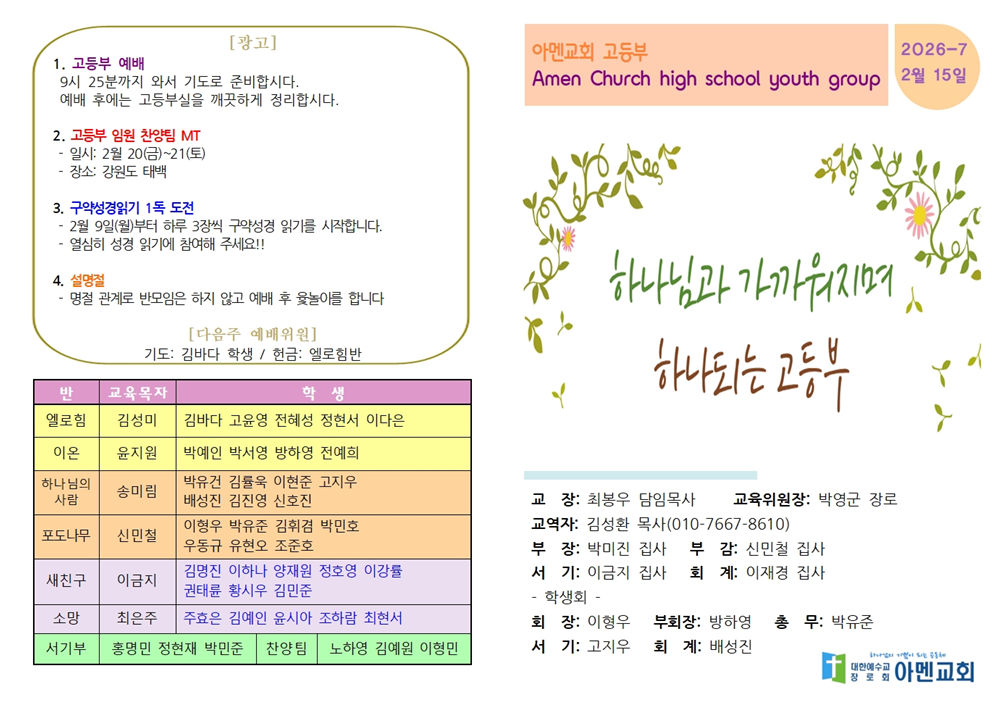 [광고]
1. 고등부 예배
9시 25분까지 와서 기도로 준비합시다.
예배 후에는 고등부실을 깨끗하게 정리합시다.
2. 고등부 임원 찬양팀 MT
- 일시: 2월 20(금)~21(토)
- 장소: 강원도 태백
3. 구약성경읽기 1독 도전
- 2월 9일(월)부터 하루 3장씩 구약성경 읽기를 시작합니다.
- 열심히 성경 읽기에 참여해 주세요!!
4. 설명절
- 명절 관계로 반모임은 하지 않고 예배 후 윷놀이를 합니다
[다음주 예배위원]
기도: 김바다 학생 / 헌금: 엘로힘반
반 교육목자 학 생
엘로힘 김성미 김바다 고윤영 전혜성 정현서 이다은
이온 윤지원 박예인 박서영 방하영 전예희
하나님의 사람 송미림 박유건 김률욱 이현준 고지우
배성진 김진영 신호진
포도나무 신민철 이형우 박유준 김휘겸 박민호
우동규 유현오 조준호
새친구 이금지 김명진 이하나 양재원 정호영 이강률
권태륜 황시우 김민준
소망 최은주 주효은 김예인 윤시아 조하람 최현서
서기부 홍명민 정현재 박민준 찬양팀 노하영 김예원 이형민
아멘교회 고등부
Amen Church high school youth group
2026-7
2월 15일
하나님과 가까워지며
하나되는 고등부
교 장: 최봉우 담임목사 교육위원장: 박영군 장로
교역자: 김성환 목사(010-7667-8610)
부 장: 박미진 집사 부 감: 신민철 집사
서 기: 이금지 집사 회 계: 이재경 집사
- 학생회 -
회 장: 이형우 부회장: 방하영 총 무: 박유준
서 기: 고지우 회 계: 배성진
하나님의 기쁨이 되는 공동체
대한예수교
장로회
아멘교회